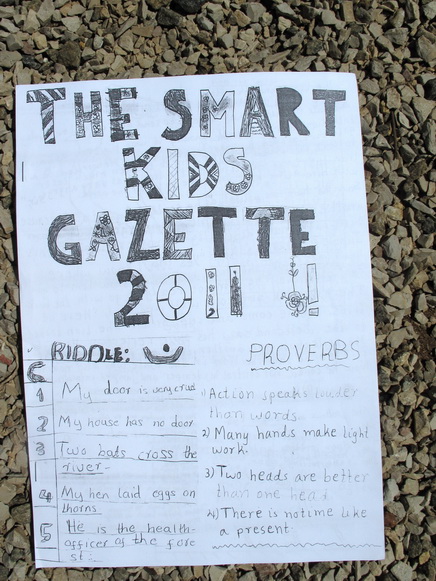 THE SMART
KIDS
GAZETTE
2011 !!
RIDDLE:
1 My door is very
2 My house has no door
3 Two bats cross the
river.
4 My hen laid eggs on
thorns
5 He is the health-
officer of the fore
st.
PROVERBS
1) Action speaks louder
than words.
2) Many hands make light
work.
3) Two heads are better
than one head
4) There is notime like
a present.